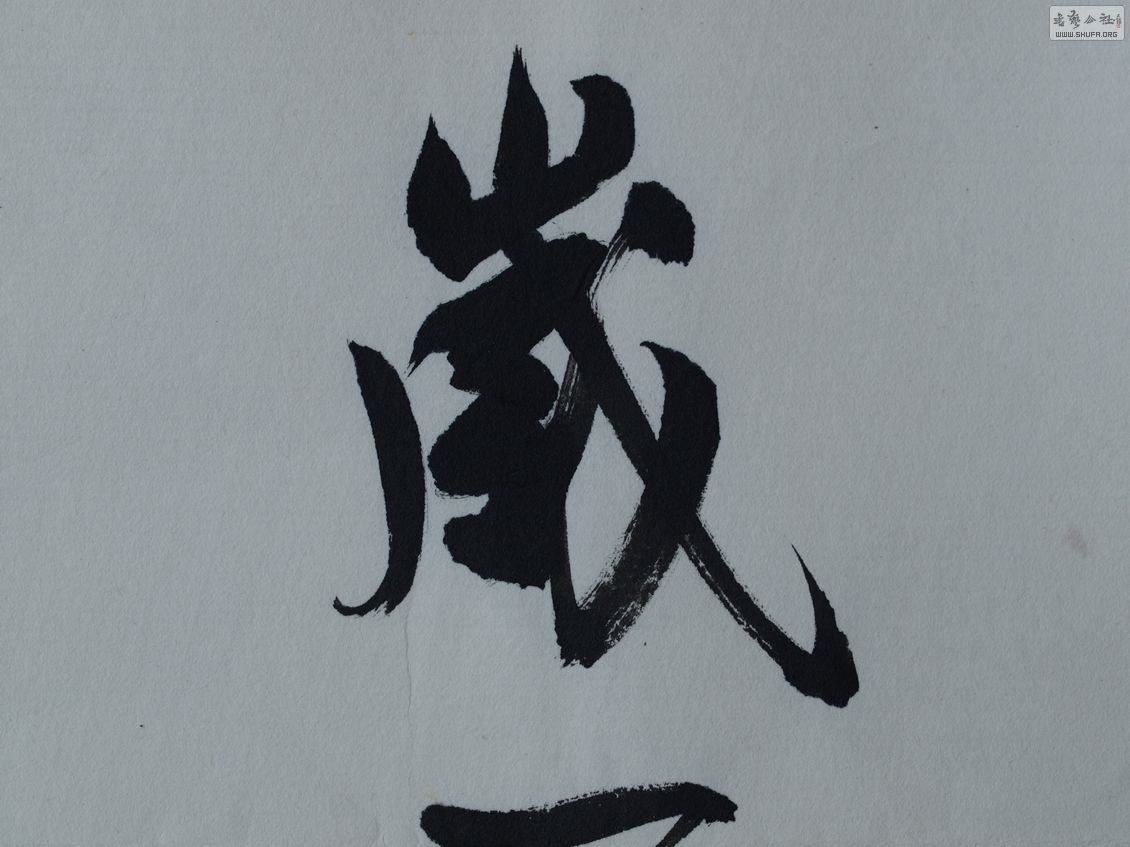 書藝公社
WWW.SHUFA.ORG
歲